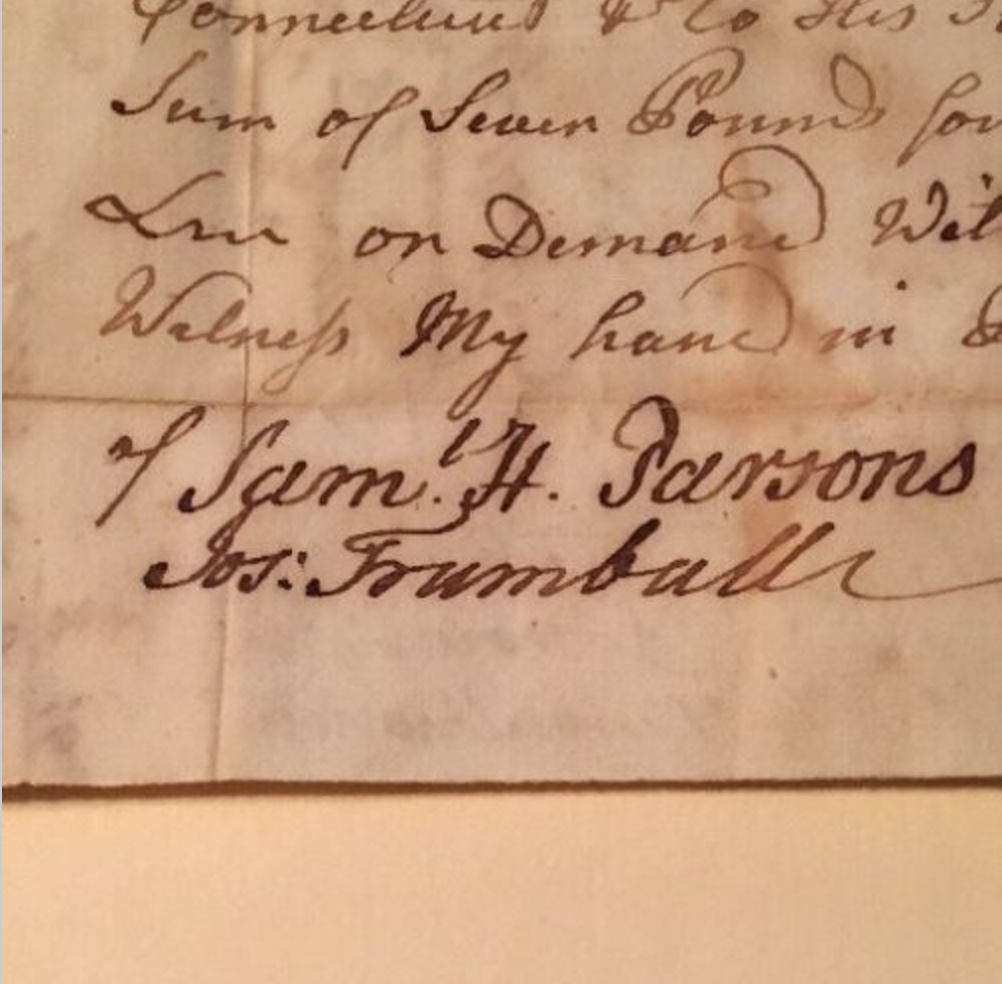 Connecticut & to His
Sum of Seven Pounds
on Demand
Witness My hand in
Saml. H. Parsons
Jos: Trumball